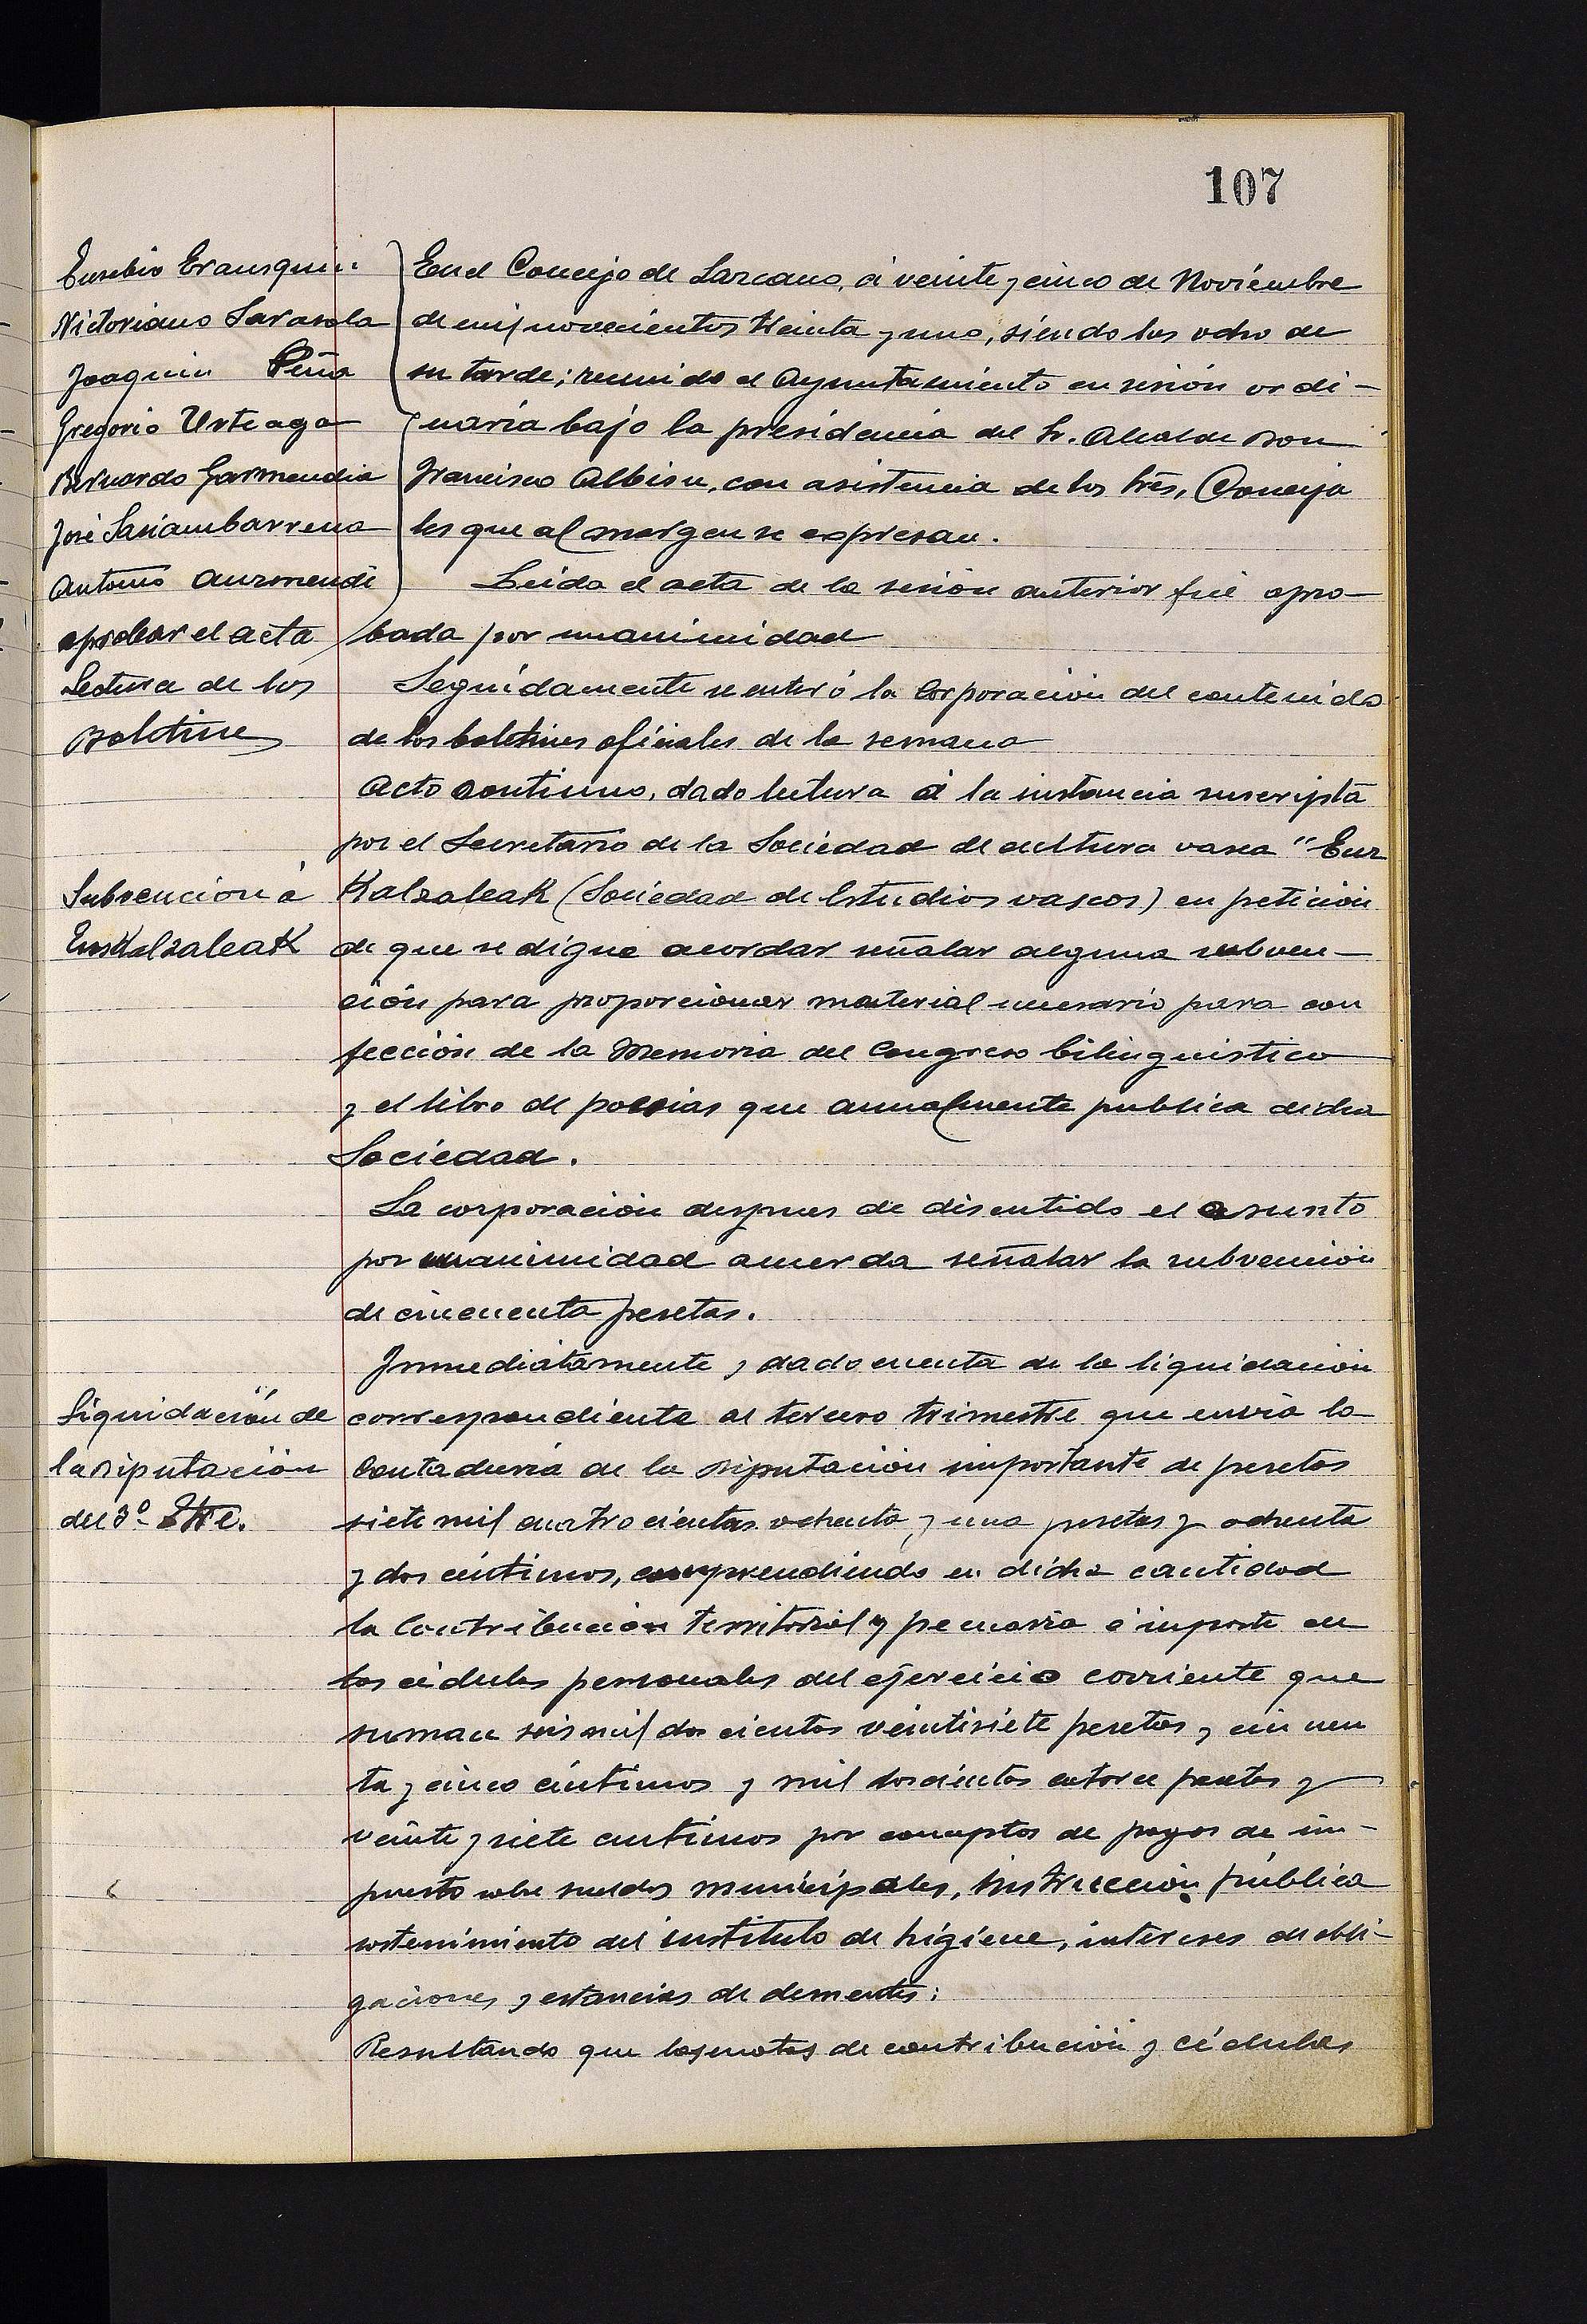 107
Eusebio Erausquin
Victoriano Sarasola
Joaquin Peña
Gregorio Urteaga
Bernardo Garmendia
José Sasiambarrena
Antonio Aurmendi
En el Concejo de Lazcano, á veinte y cinco de Noviembre
de mil novecientos treinta y uno, siendo las ocho de
su tarde; reunido el Ayuntamiento en sesión ordi-
naria bajo la presidencia del Sr. Alcalde Don
Francisco Albisu, con asistencia de los Srês, Conceja
les que al margen se expresan.
Leida el acta de la sesión anterior fué apro-
aprobar el acta
bada por unanimidad
Lectura de los
Boletines
Seguidamente se enteró la Corporación del contenido
de los boletines oficiales de la semana
Acto continuo, dado lectura á la instancia suscripta
por el Secretario de la Sociedad de cultura vasca "Euz
Subvencion á
Euskalzaleak
Kalzaleak (Sociedad de Estudios vascos) en petición
de que se digne acordar señalar alguna subven-
ción para proporcionar material necesario para con
fección de la Memoria del Congreso bilinguistico
y el libro de poesias que anualmente publica dicha
Sociedad.
La corporación despues de discutido el asunto
por unanimidad acuerda señalar la subvención
de cincuenta pesetas.
Inmediatamente, dado cuenta de la liquidación
Liquidación de
la Diputación
del 3º Tre.
correspondiente al tercero trimestre que envia la
Contaduria de la Diputación importante de pesetas
siete mil cuatrocientas ochenta y una pesetas y ochenta
y dos céntimos, comprendiendo en dicha cantidad
la Contribución territorial y pecuaria é importe de
las cédulas personales del ejercicio corriente que
suman seis mil doscientas veintisiete pesetas y cincuen
ta y cinco céntimos y mil doscientos catorce pesetas y
veinte y siete céntimos por conceptos de pagos de im-
puesto sobre sueldos municipales, instrucción pública
sostenimiento del instituto de higiene, intereses de obli-
gaciones y estancias de dementes;
Resultando que las cuotas de contribución y cédulas